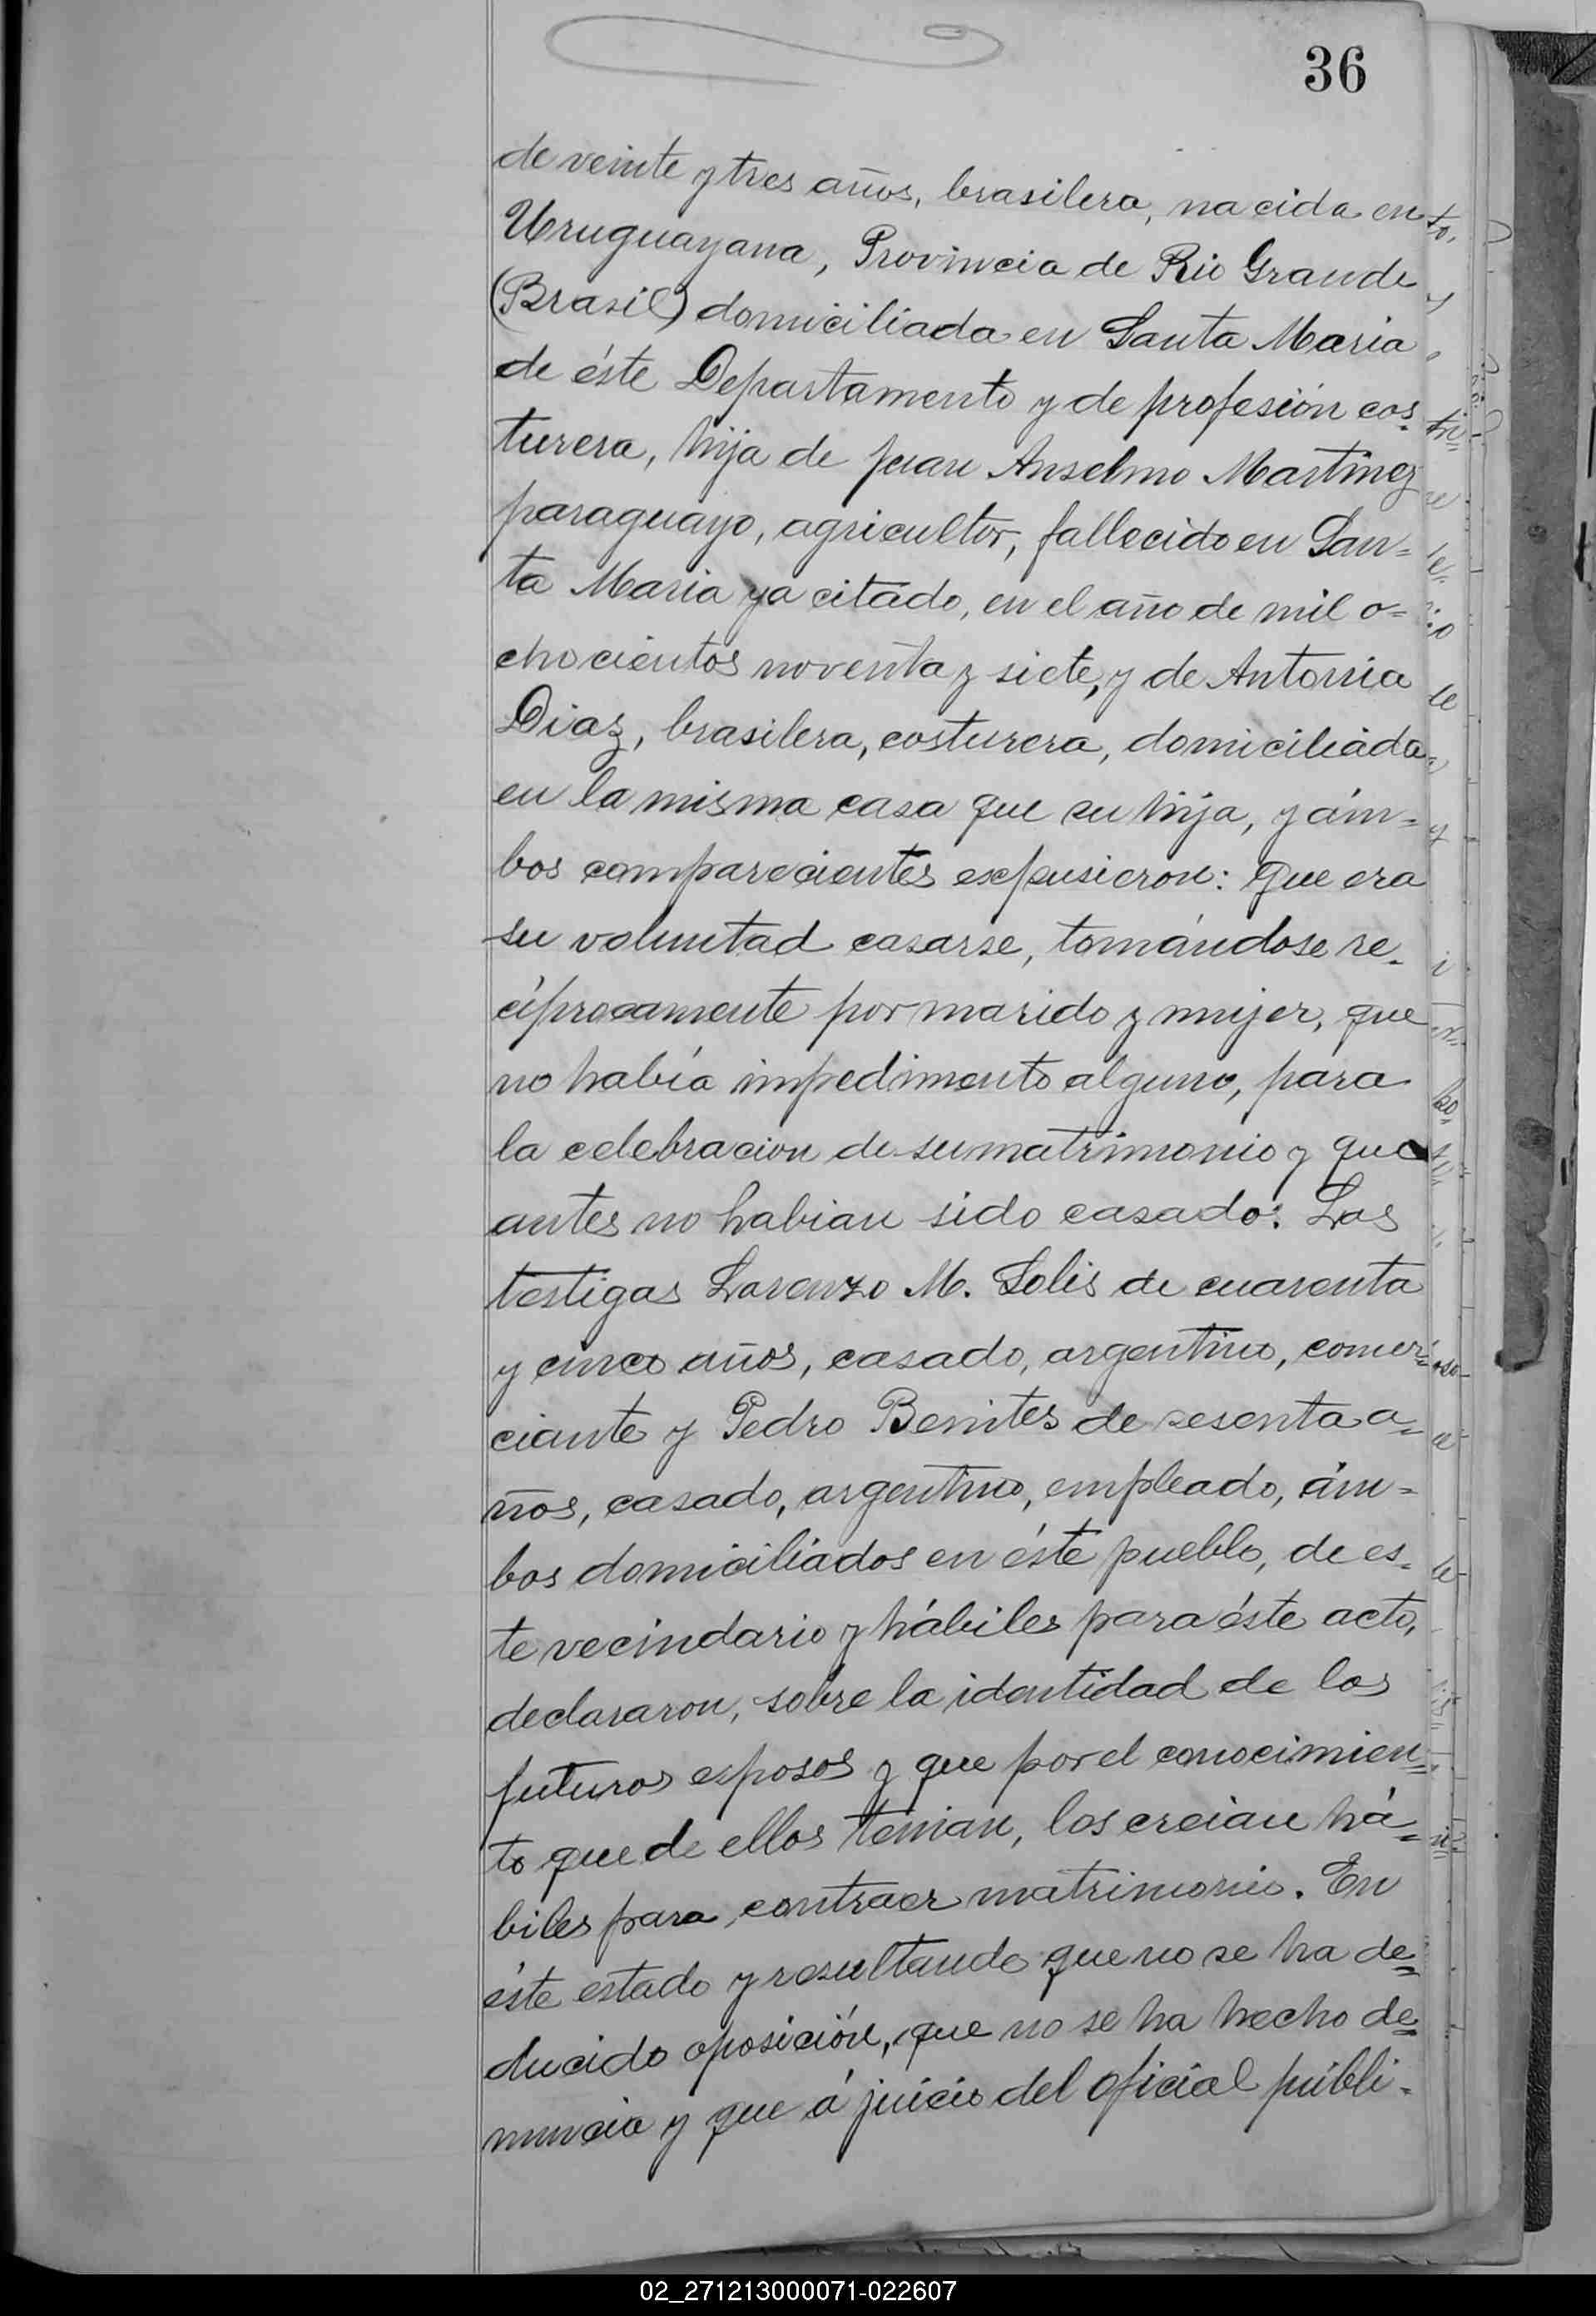 36
de veinte y tres años, brasilera, nacida en
Uruguayana, Provincia de Rio Grande
(Brasil) domiciliada en Santa Maria
de éste Departamento y de profesión cos-
turera, hija de Juan Anselmo Martinez
paraguayo, agricultor, fallecido en San=
ta Maria ya citado, en el año de mil o=
chocientos noventa y siete, y de Antonia
Diaz, brasilera, costurera, domiciliada
en la misma casa que su hija, y ám=
bos comparecientes expusieron: Que era
su voluntad casarse, tomándose re-
cíprocamente por marido y mujer, que
no había impedimento alguno, para
la celebracion de su matrimonio y que
antes no habian sido casado: Los
testigos Lorenzo M. Solis de cuarenta
y cinco años, casado, argentino, comer=
ciante y Pedro Benites de sesenta a=
ños, casado, argentino, empleado, ám=
bos domiciliados en éste pueblo, de es-
te vecindario y hábiles para éste acto,
declararon, sobre la identidad de los
futuros esposos y que por el conocimien=
to que de ellos tenian, los creian há=
biles para contraer matrimonio. En
éste estado y resultando que no se ha de=
ducido oposición, que no se ha hecho de=
nuncia y que á juicio del oficial públi-
02_271213000071-022607